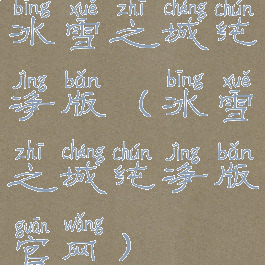 bīng xuě zhī chéng chún
冰雪之城纯
jìng bǎn bīng xuě
净版（冰雪
zhī chéng chún jìng bǎn
之城纯净版
guān wǎng
官网）